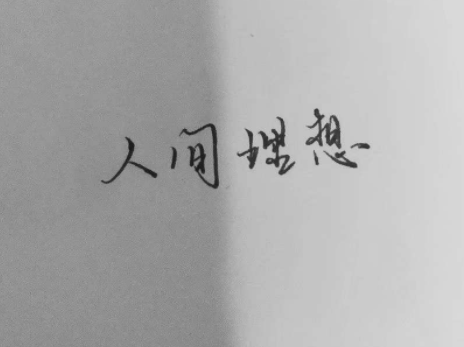 人间理想